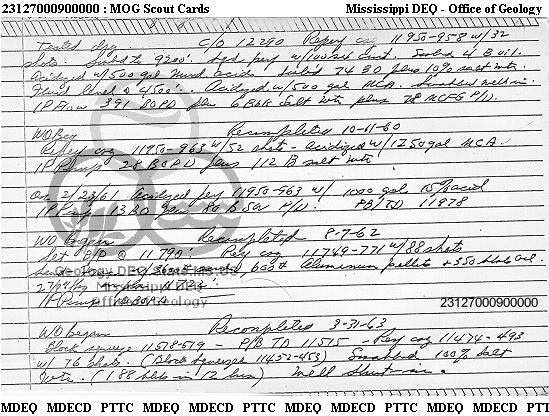 23127000900000 : MOG Scout Cards
Mississippi DEQ - Office of Geology
Tested dry C/O 12290 Reperf csg 11950-958 w/32
shots. Swbd to 9200'. perf w/100 sx cmt. Swbd 4 B oil.
Acidized w/500 gal mud acid, Swb'd 74 BO plus 10% salt wtr.
Fluid level @ 4500'. Acidized w/500 gal MCA. Swabbed well in.
IP Flow 391 BOPD plus 6 Bbls Salt wtr plus 78 MCFG P/D.
WO Beg Recompleted 10-11-60
Reperf csg 11950-963 w/52 shots - acidized w/1250 gal MCA.
IP Pump 28 BOPD plus 112 B salt wtr
On 2/23/61 Acidized perf 11950-963 w/ 1000 gal 15% acid
IP Pump 13 BO plus 80 B SW P/D. PB/TD 11978
WO began Recompleted 8-7-62
Set B/P @ 11790'. Perf csg 11749-771 w/88 shots
600# Aluminum pellets + 350 bbls oil.
IP Pump BOPD
Geology DEQ State MS US
Mississippi DEQ
Office of Geology
23127000900000
WO began Recompleted 3-31-63
Block squeeze 11518-519 - P/B TD 11515 - Perf csg 11474-493
w/ 76 shots. (Block Squeezed 11452-453) Swabbed 100% salt
wtr. (188 bbls in 12 hrs) Well Shut in.
MDEQ MDECD PTTC MDEQ MDECD PTTC MDEQ MDECD PTTC MDEQ MDECD PTT